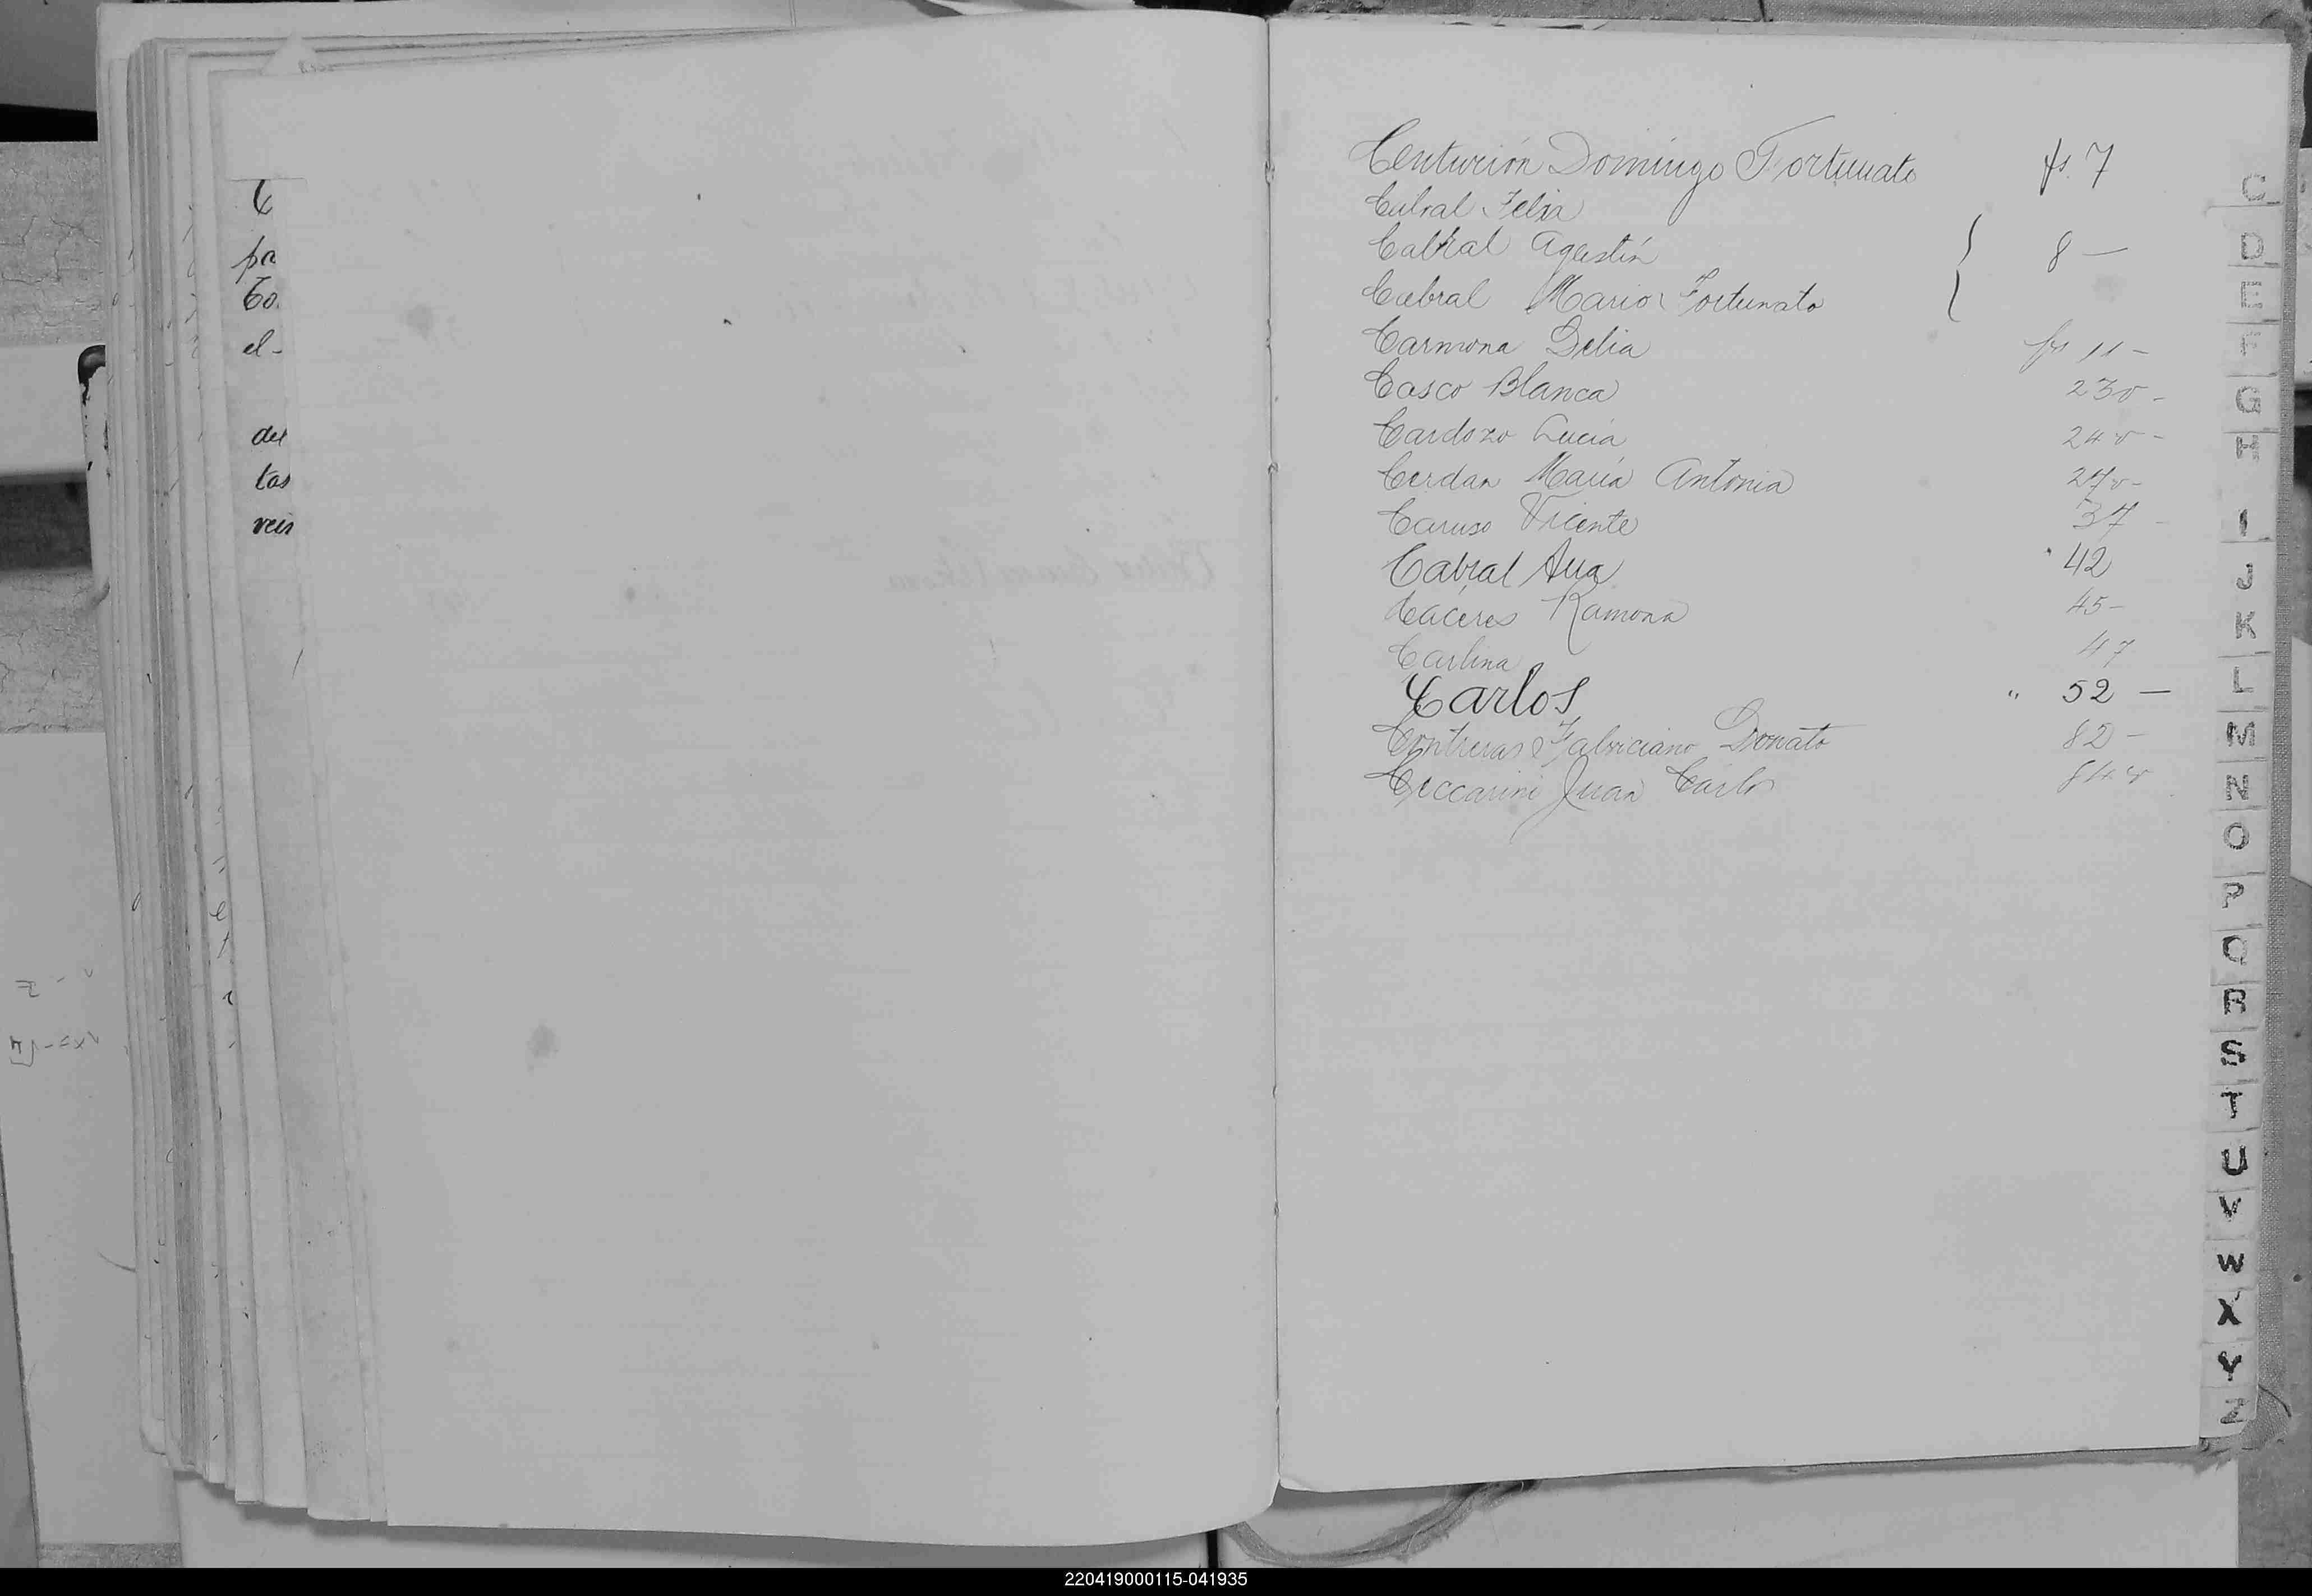 C
pa
Co
el-
del
tas
veis
Centurión Domingo Fortunato fs. 7
Cabral Felix
Cabral Agustín
Cabral Mario Fortunato 8 —
Carmona Delia fs 11 -
Casco Blanca 23v -
Cardozo Lucia 24v -
Cerdan María Antonia 27v -
Caruso Vicente 37 -
Cabral Ana 42
Caceres Ramona 45 -
Carlina 47
Carlos " 52 —
Contreras Fabriciano Donato 82 -
Ceccarini Juan Carlos 84v
C
D
E
F
G
H
I
J
K
L
M
N
O
P
Q
R
S
T
U
V
W
X
Y
Z
220419000115-041935